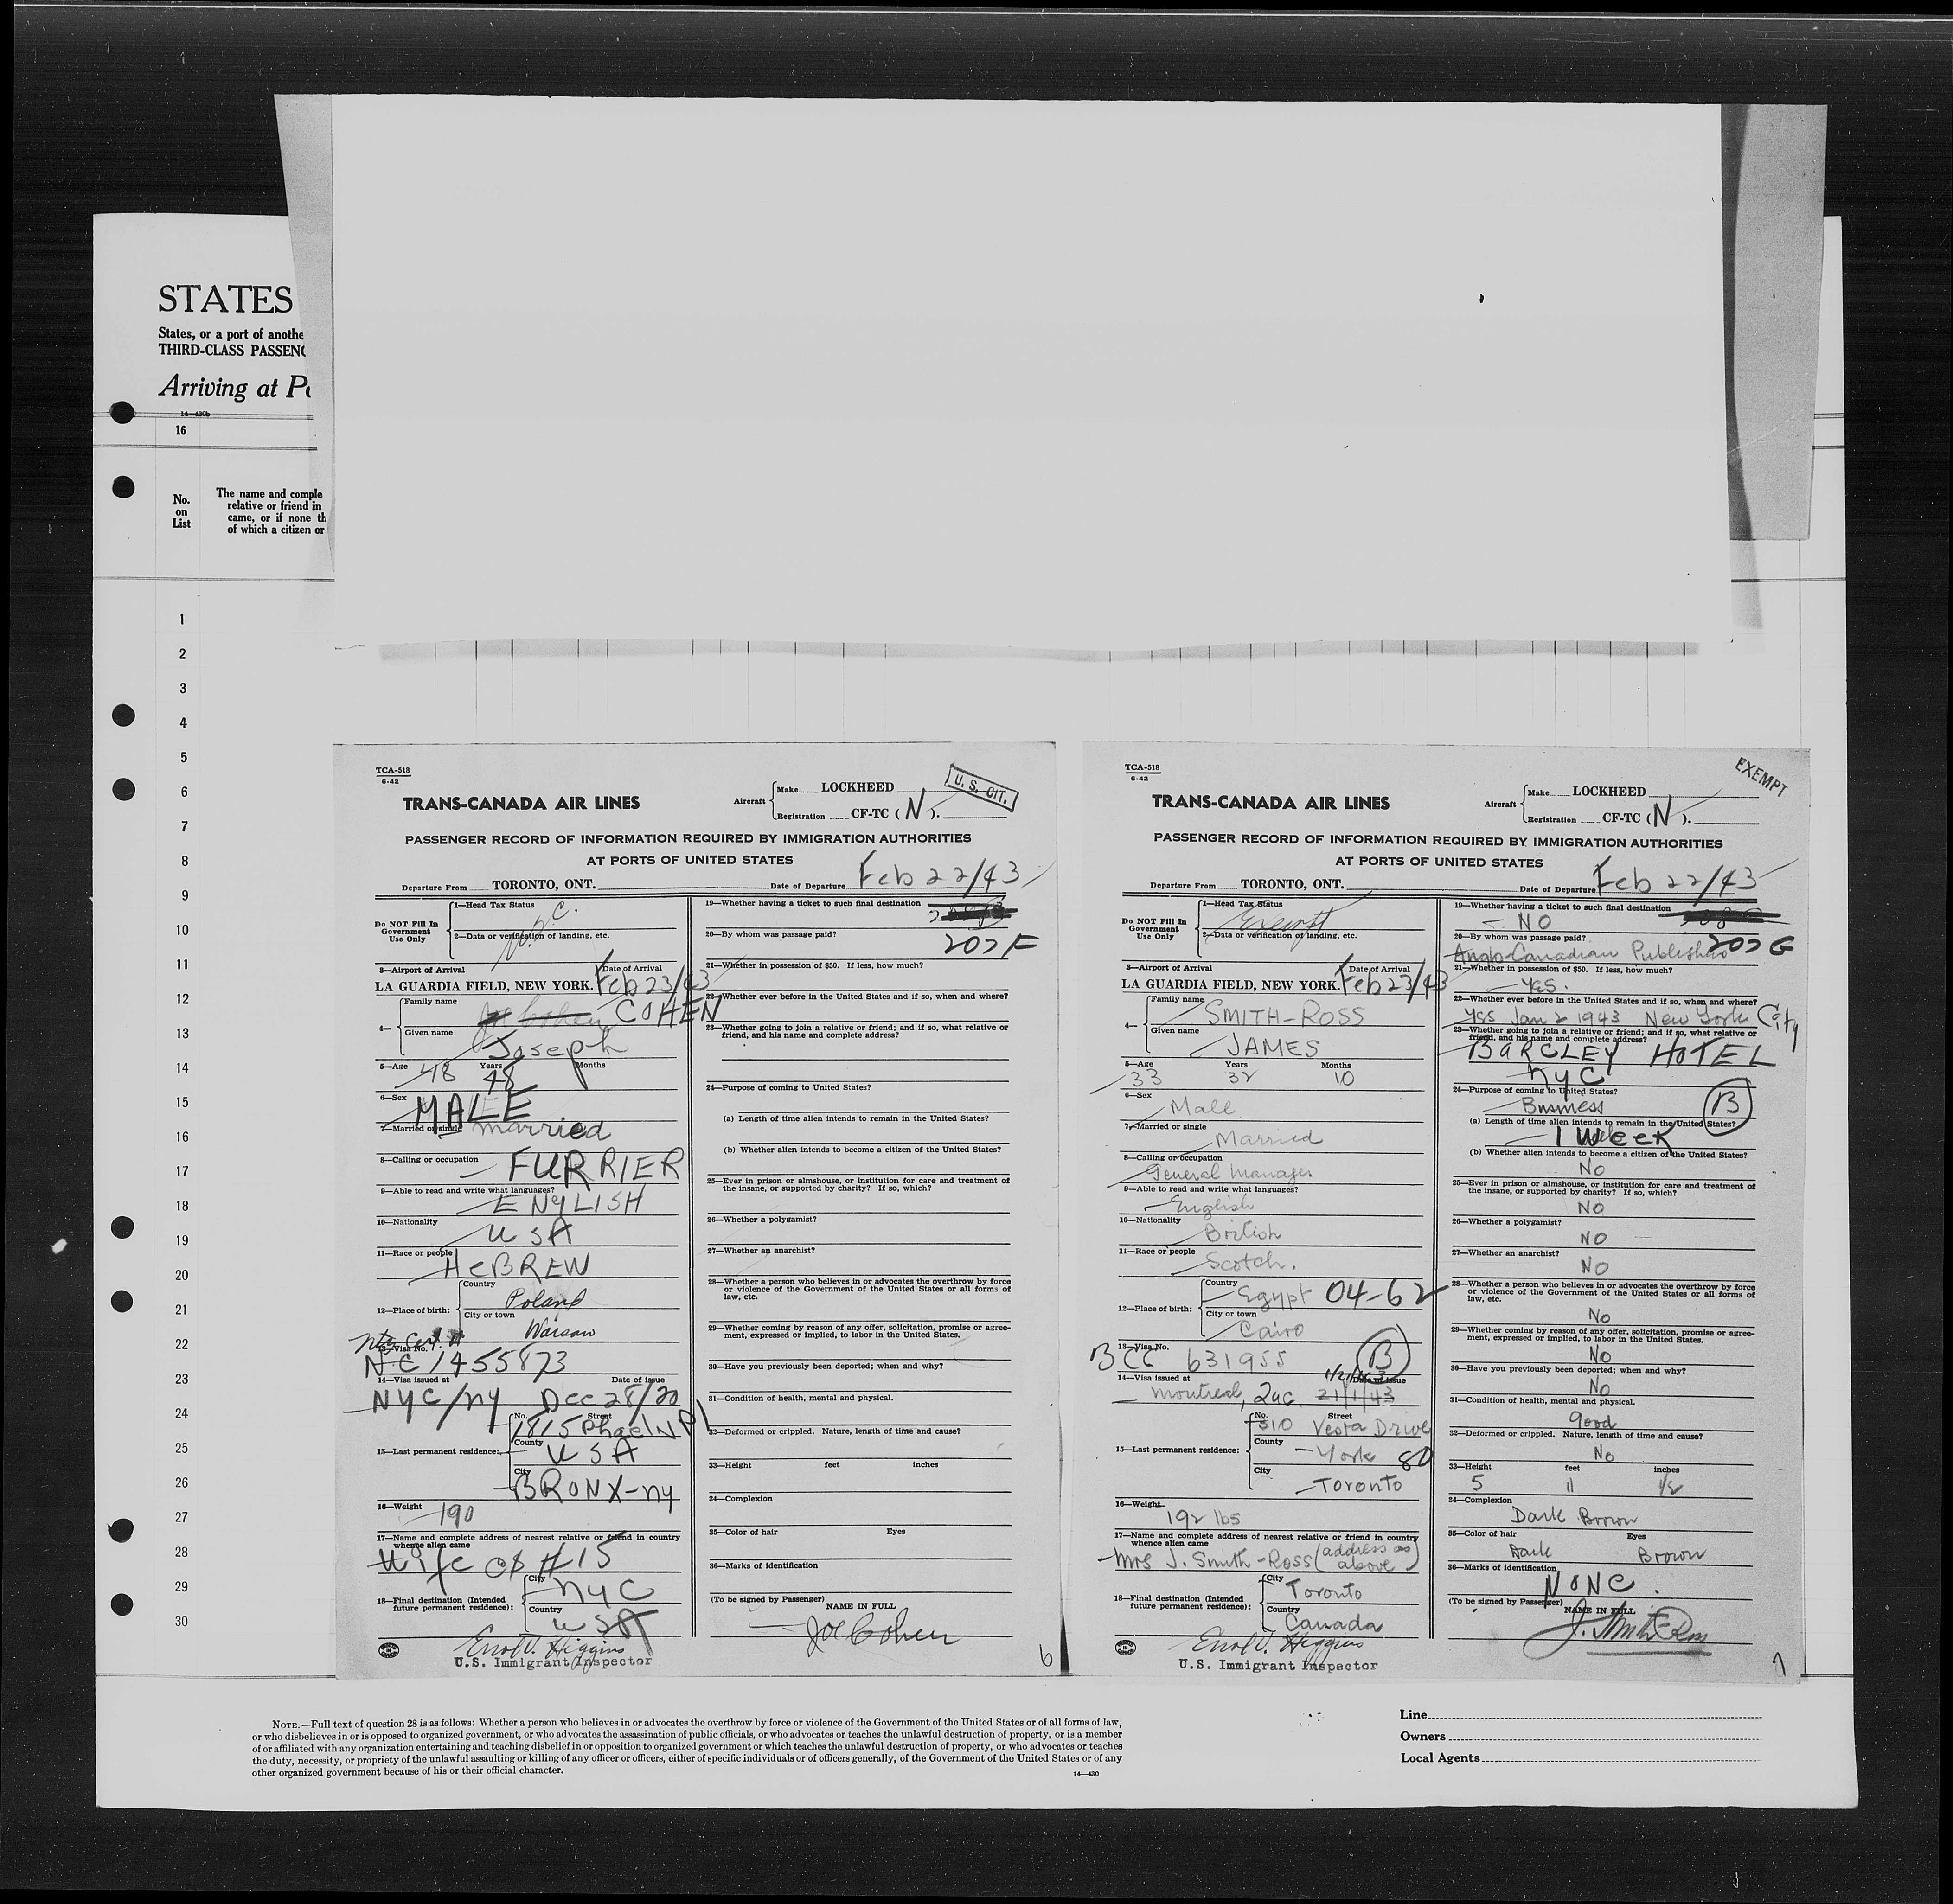 STATES
States, or a port of anothe
THIRD-CLASS PASSENG
Arriving at Po
14—430b
16
No. on List
The name and comple
relative or friend in
came, or if none th
of which a citizen or
1
2
3
4
5
6
7
8
9
10
11
12
13
14
15
16
17
18
19
20
21
22
23
24
25
26
27
28
29
30
TCA-518
6-42
U. S. CIT.
TRANS-CANADA AIR LINES
Aircraft
Make LOCKHEED
Registration CF-TC ( N ).
PASSENGER RECORD OF INFORMATION REQUIRED BY IMMIGRATION AUTHORITIES
AT PORTS OF UNITED STATES
Departure From TORONTO, ONT. Date of Departure Feb 22/43
Do NOT Fill In Government Use Only
1—Head Tax Status
2—Data or verification of landing, etc.
3—Airport of Arrival Date of Arrival
LA GUARDIA FIELD, NEW YORK. Feb 23/43
4— Family name COHEN
Given name Joseph
5—Age 48 Years 48 Months
6—Sex MALE
7—Married or single married
8—Calling or occupation FURRIER
9—Able to read and write what languages?
ENYLISH
10—Nationality
USA
11—Race or people
HEBREW
12—Place of birth: Country Poland
City or town Warsaw
13—Visa No.
N.C 1455873
14—Visa issued at Date of issue
NYC/NY Dec 28/20
15—Last permanent residence: No. Street
1815
County USA
City BRONX-NY
16—Weight
190
17—Name and complete address of nearest relative or friend in country
whence alien came
Wife #15
18—Final destination (Intended
future permanent residence): City NYC
Country USA
Errol V. Higgins
U.S. Immigrant Inspector
19—Whether having a ticket to such final destination
20—By whom was passage paid?
202F
21—Whether in possession of $50. If less, how much?
22—Whether ever before in the United States and if so, when and where?
23—Whether going to join a relative or friend; and if so, what relative or
friend, and his name and complete address?
24—Purpose of coming to United States?
(a) Length of time alien intends to remain in the United States?
(b) Whether alien intends to become a citizen of the United States?
25—Ever in prison or almshouse, or institution for care and treatment of
the insane, or supported by charity? If so, which?
26—Whether a polygamist?
27—Whether an anarchist?
28—Whether a person who believes in or advocates the overthrow by force
or violence of the Government of the United States or all forms of
law, etc.
29—Whether coming by reason of any offer, solicitation, promise or agree-
ment, expressed or implied, to labor in the United States.
30—Have you previously been deported; when and why?
31—Condition of health, mental and physical.
32—Deformed or crippled. Nature, length of time and cause?
33—Height feet inches
34—Complexion
35—Color of hair Eyes
36—Marks of identification
(To be signed by Passenger)
NAME IN FULL
Joe Cohen
6
TCA-518
6-42
EXEMPT
TRANS-CANADA AIR LINES
Aircraft
Make LOCKHEED
Registration CF-TC ( N ).
PASSENGER RECORD OF INFORMATION REQUIRED BY IMMIGRATION AUTHORITIES
AT PORTS OF UNITED STATES
Departure From TORONTO, ONT. Date of Departure Feb 22/43
Do NOT Fill In Government Use Only
1—Head Tax Status
Exempt
2—Data or verification of landing, etc.
3—Airport of Arrival Date of Arrival
LA GUARDIA FIELD, NEW YORK. Feb 23/43
4— Family name SMITH-ROSS
Given name JAMES
5—Age Years Months
33 32 10
6—Sex
Male
7—Married or single
Married
8—Calling or occupation
General Manager
9—Able to read and write what languages?
English
10—Nationality
British
11—Race or people
Scotch.
12—Place of birth: Country Egypt 04-62
City or town Cairo
13—Visa No.
BCC 631955 B
14—Visa issued at Date of issue
Montreal, Que. 21/1/43
15—Last permanent residence: No. Street
310 Vesta Drive
County York 80
City Toronto
16—Weight
192 lbs
17—Name and complete address of nearest relative or friend in country
whence alien came
Mrs J. Smith-Ross (address as above)
18—Final destination (Intended
future permanent residence): City Toronto
Country Canada
Errol V. Higgins
U.S. Immigrant Inspector
19—Whether having a ticket to such final destination
NO
20—By whom was passage paid? 202 G
Anglo-Canadian
21—Whether in possession of $50. If less, how much?
Yes.
22—Whether ever before in the United States and if so, when and where?
Yes Jan 2 1943 New York City
23—Whether going to join a relative or friend; and if so, what relative or
friend, and his name and complete address?
BARCLEY HOTEL
NYC
24—Purpose of coming to United States?
Business B
(a) Length of time alien intends to remain in the United States?
1 Week
(b) Whether alien intends to become a citizen of the United States?
No
25—Ever in prison or almshouse, or institution for care and treatment of
the insane, or supported by charity? If so, which?
No
26—Whether a polygamist?
NO
27—Whether an anarchist?
No
28—Whether a person who believes in or advocates the overthrow by force
or violence of the Government of the United States or all forms of
law, etc.
No
29—Whether coming by reason of any offer, solicitation, promise or agree-
ment, expressed or implied, to labor in the United States.
No
30—Have you previously been deported; when and why?
No
31—Condition of health, mental and physical.
good
32—Deformed or crippled. Nature, length of time and cause?
No
33—Height feet inches
5 11 1/2
34—Complexion
Dark Brown
35—Color of hair Eyes
Dark Brown
36—Marks of identification
NONE.
(To be signed by Passenger)
NAME IN FULL
J. Smith Ross
7
NOTE.—Full text of question 28 is as follows: Whether a person who believes in or advocates the overthrow by force or violence of the Government of the United States or of all forms of law,
or who disbelieves in or is opposed to organized government, or who advocates the assassination of public officials, or who advocates or teaches the unlawful destruction of property, or is a member
of or affiliated with any organization entertaining and teaching disbelief in or opposition to organized government or which teaches the unlawful destruction of property, or who advocates or teaches
the duty, necessity, or propriety of the unlawful assaulting or killing of any officer or officers, either of specific individuals or of officers generally, of the Government of the United States or of any
other organized government because of his or their official character.
14—430
Line
Owners
Local Agents